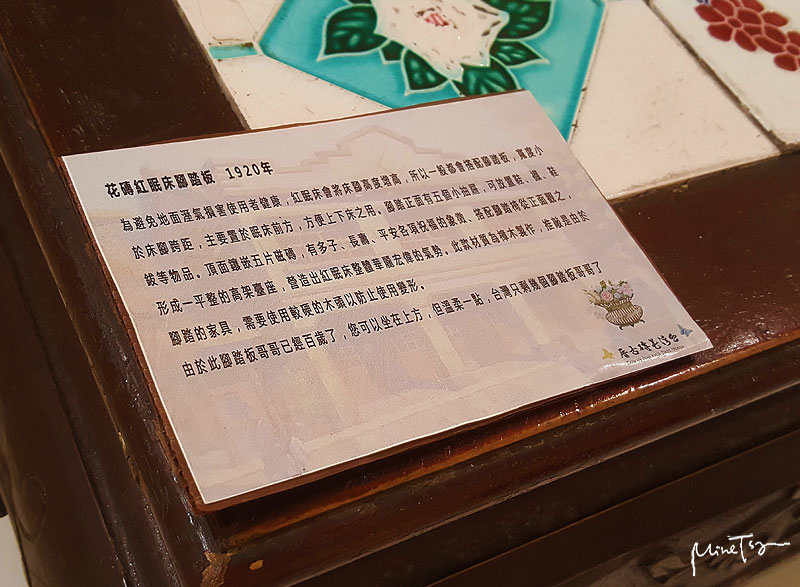 花磚紅眠床腳踏板 1920年
為避免地面溼氣損害使用者健康，紅眠床會將床腳高度增高，所以一般都會搭配腳踏板，寬度小
於床腳跨距，主要置於眠床前方，方便上下床之用。腳踏正面有五個小抽屜，可放置鞋、襪、鞋
拔等物品。頂面鑲嵌五片磁磚，有多子、長壽、平安各項祝福的象徵、搭配腳踏椅從正面觀之，
形成一平整的高架臺座，營造出紅眠床整體華麗宏偉的氣勢。此款材質為樟木製作，推就是由於
腳踏的家具，需要使用較硬的木頭以防止使用變形。
由於此腳踏板哥哥已經百歲了，您可以坐在上方，但溫柔一點，台灣只剩幾個腳踏板哥哥了
MineTsy